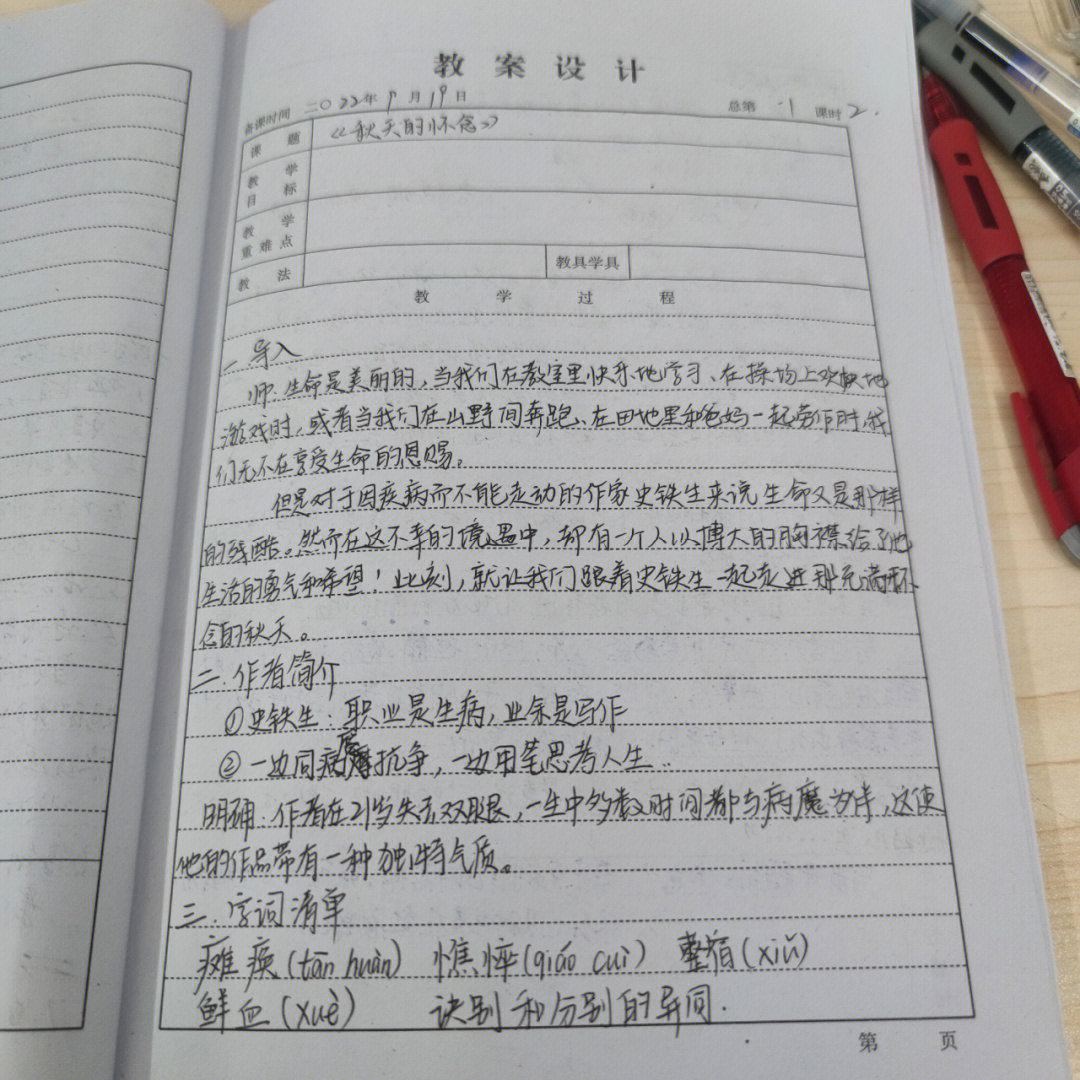 教案设计
备课时间 二〇22年9月19日 总第 1 课时2.
课题 《秋天的怀念》
教学目标
教学重难点
教法 教具学具
教学过程
一 导入
师:生命是美丽的,当我们在教室里快乐地学习、在操场上欢快地
游戏时,或者当我们在山野间奔跑、在田地里和爸妈一起劳作时,我
们无不在享受生命的恩赐。
但是对于因疾病而不能走动的作家史铁生来说生命又是那样
的残酷。然而在这不幸的境遇中,却有一个人以博大的胸襟给了他
生活的勇气和希望!此刻,就让我们跟着史铁生一起走进那充满怀
念的秋天。
二.作者简介
①史铁生:职业是生病,业余是写作
②一边同病魔抗争,一边用笔思考人生..
明确:作者在21岁失去双腿,一生中多数时间都与病魔为伴,这使
他的作品带有一种独特气质。
三.字词清单
瘫痪(tān huàn) 憔悴(qiáo cuì) 整宿(xiǔ)
鲜血(xuè) 诀别和分别的异同.
第 页